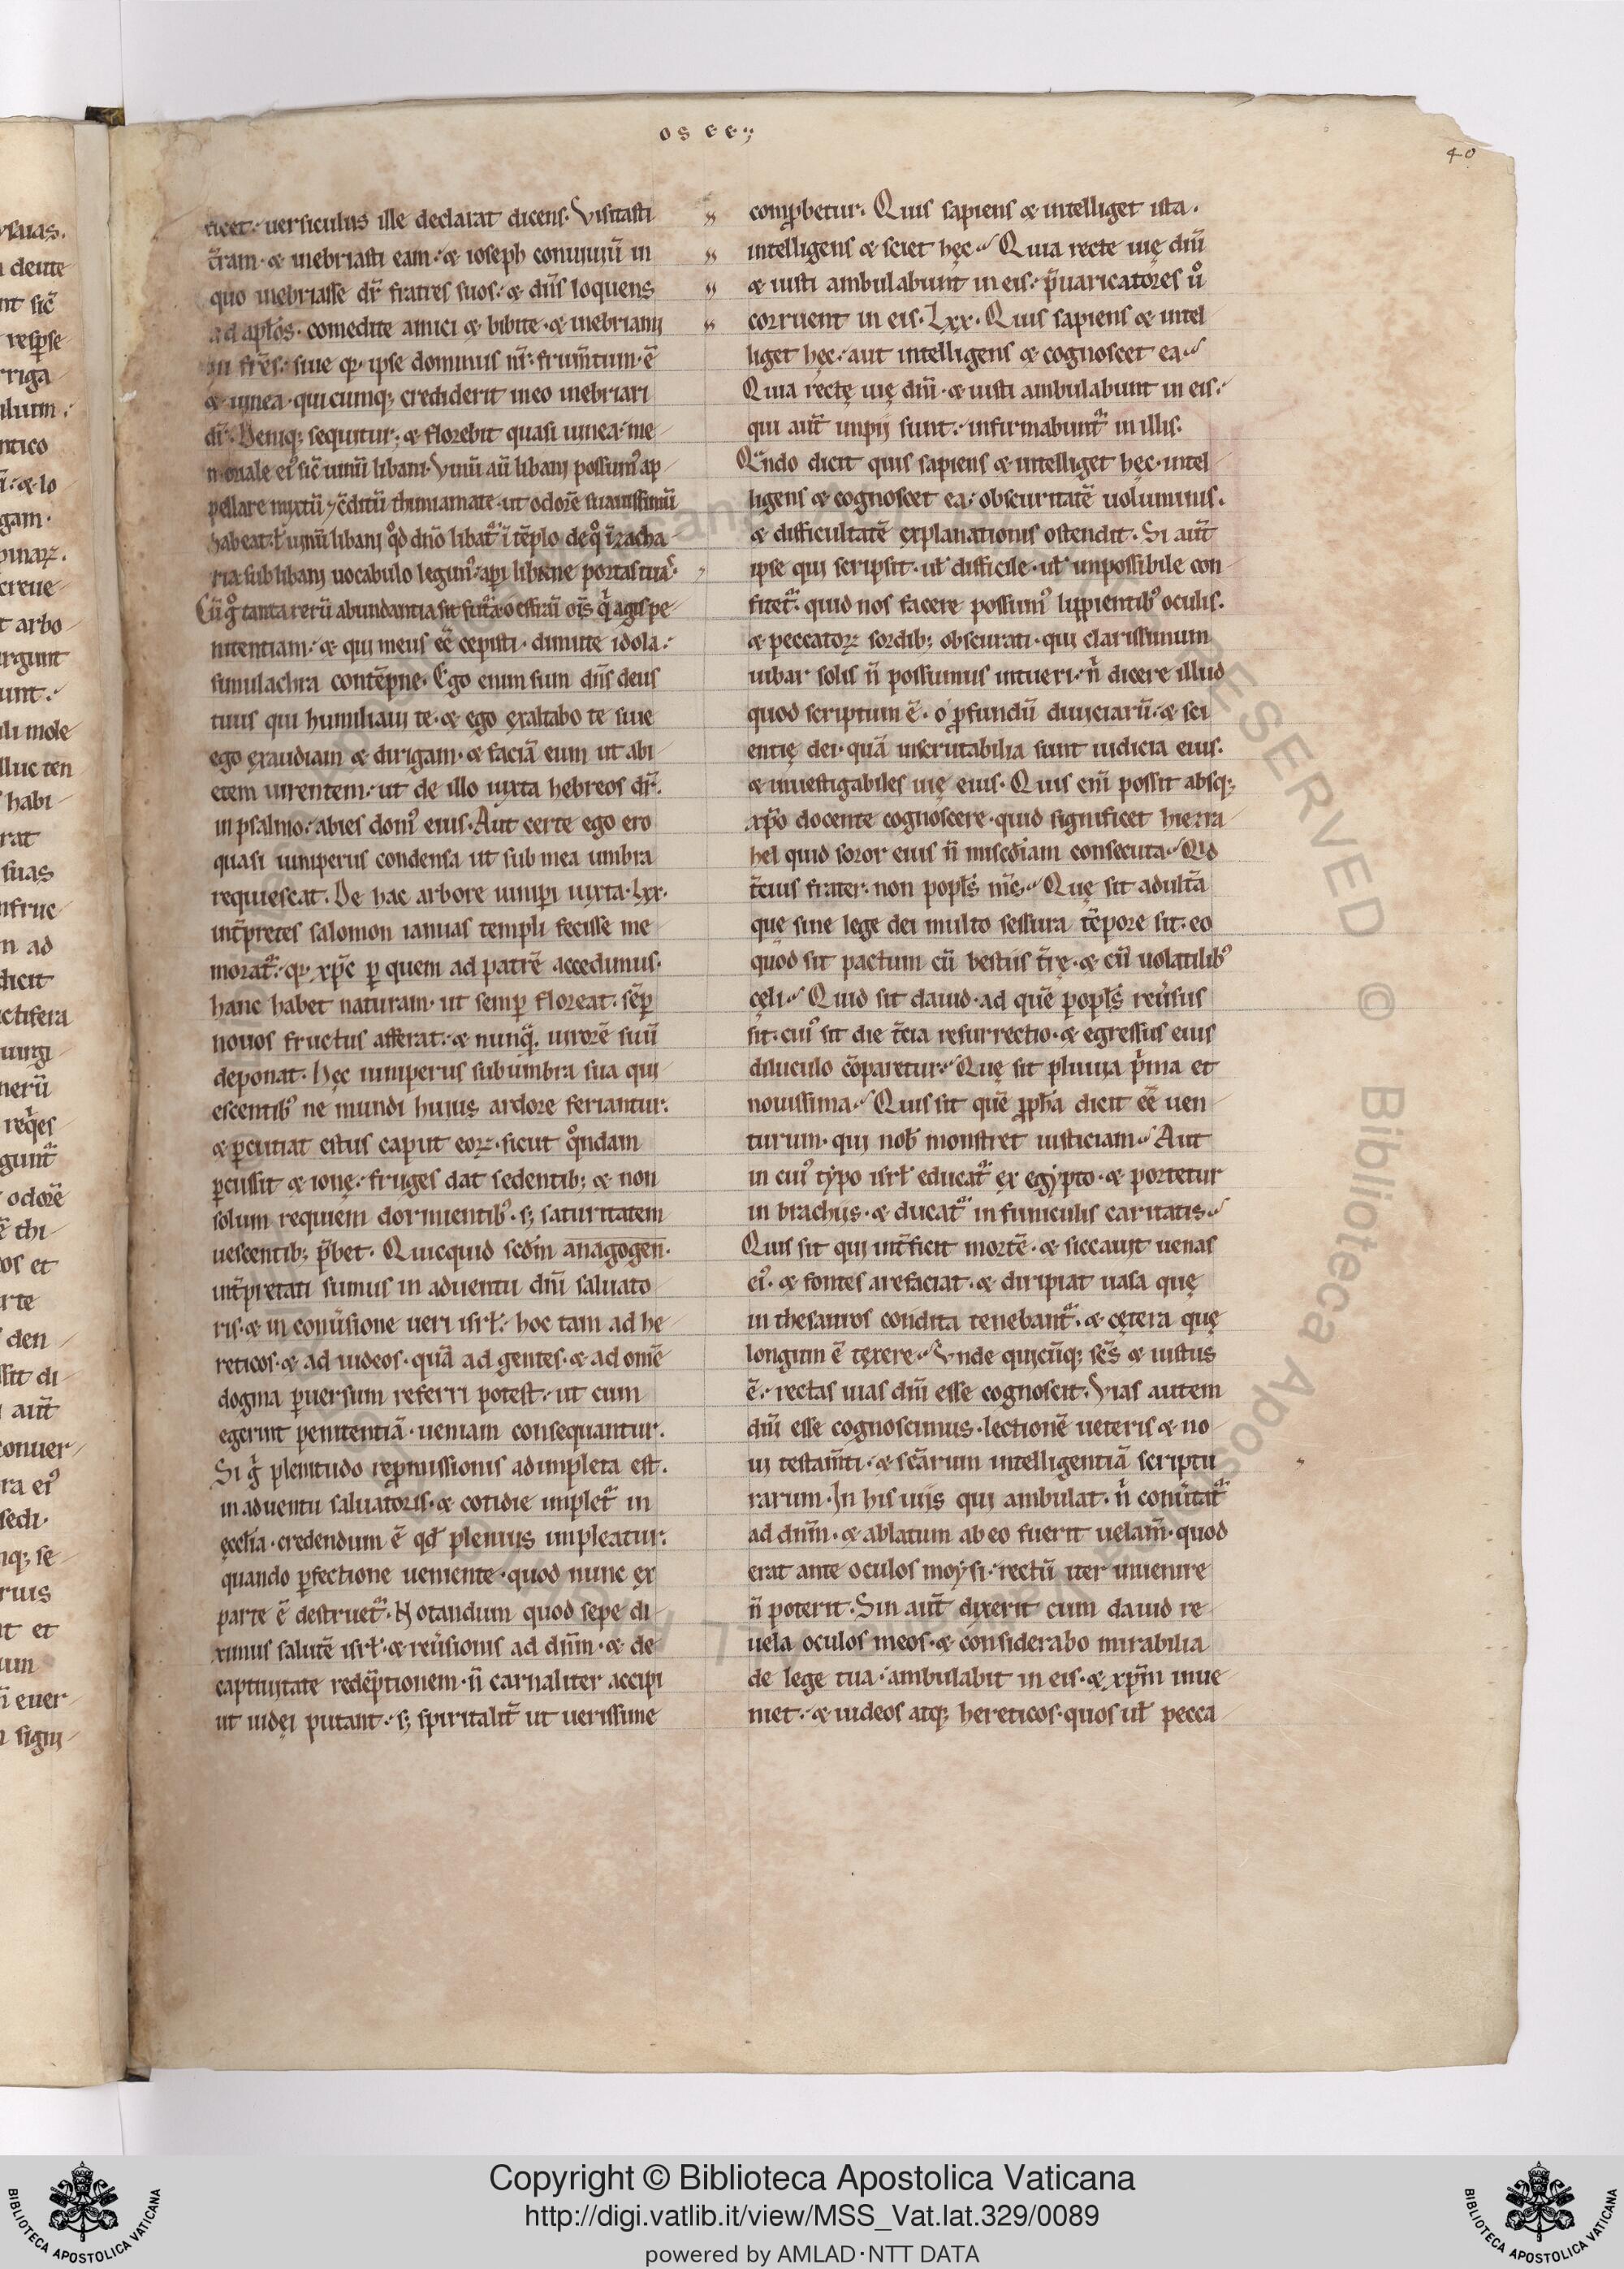 osee;
40
ficet: uersiculus ille declarat dicens. Visitasti
t̃ram. & inebriasti eam: & ioseph conuiuiũ in
quo inebriasse dr̃ fratres suos: & dñs loquens
ad apłos. comedite amici & bibite. & inebriamj
inj fr̃es: siue qr ipse dominus nr̃: frum̃tum. ẽ
& uinea. quicumq; crediderit in eo inebriari
dr̃. Deniq; sequitur: & florebit quasi uinea. me-
moriale ei᷒ sic̃ uinũ libani. Vinũ aũ libani possum᷒ ap-
pellare mixtũ 7 c̃ditũ thimiamate. ut odorẽ suauissimũ
habeat. ł uinũ libani qd̊ dño libat᷑ ĩ tẽplo. de q̊ ĩ zacha-
ria sub libani uocabulo legim᷒: api libane portas tua᷒.
Cũ g̊ tanta rerũ abundantia sit fut᷑a. o effraĩ oĩs qͥ agis pe-
nitentiam: & qui meus eẽ cepisti. dimitte idola:
simulachra contẽpne. Ego enim sum dñs deus
tuus qui humiliaui te. & ego exaltabo te siue
ego exaudiam & dirigam. & faciã eum ut abi-
etem uirentem: ut de illo iuxta hebreos dr̃.
in psalmo: abies dom᷒ eius. Aut certe ego ero
quasi iuniperus condensa ut sub mea umbra
requiescat. De hac arbore iunipi iuxta. lxx.
int̃pretes salomon ianuas templi fecisse me
morat᷑: qr xp̃c p quem ad patrẽ accedimus.
hanc habet naturam. ut semp floreat. sẽp
nouos fructus afferat: & nunq̃. uirorẽ suũ
deponat. Hęc iuniperus sub umbra sua qui
escentib᷒ ne mundi huius ardore feriantur.
& pcutiat estus caput eorꝝ. sicut q̊ndam
pcussit & ionę: fruges dat sedentib; & non
solum requiem dormientib᷒. s; saturitatem
uescentib; p̃bet. Quicquid scdm̃ anagogen̄.
int̃pretati sumus in aduentu dñi saluato
ris. & in conũsione ueri isrł: hoc tam ad he-
reticos. & ad iudeos. quã ad gentes. & ad omẽ
dogma puersum referri potest: ut cum
egerint penitentiã. ueniam consequantur.
Si g̊ plenitudo repromissionis adimpleta est.
in aduentu saluatoris. & cotidie implet᷑ in
ęccłia. credendum ẽ qd̃ plenius impleatur.
quando pfectione ueniente. quod nunc ex
parte ẽ destruet᷑. Notandum quod sepe di-
ximus salutẽ isrł. & reũsionis ad dñm. & de
captiuitate redẽptionem. ñ carnaliter accipi
ut iudęi putant: s; spiritalit̃ ut uerissime
comprobetur. Quis sapiens & intelliget ista.
intelligens & sciet hęc. Quia recte uię dñi
& iusti ambulabunt in eis: p̃uaricatores ů
corruent in eis. Lxx. Quis sapiens & intel
liget hęc: aut intelligens & cognoscet ea.
Quia rectę uię dñi. & iusti ambulabunt in eis:
qui aut̃ impij sunt: infirmabunt᷑ in illis.
Qᷓndo dicit quis sapiens & intelliget hęc. intel-
ligens & cognoscet ea: obscuritatẽ uoluminis.
& difficultatẽ explanationis ostendit. Si aut̃
ipse qui scripsit. uł difficile. uł impossibile con-
fitet᷑. quid nos facere possum᷒ lippientib᷒ oculis.
& peccatorꝝ sordib; obscurati. qui clarissimum
iubar solis ñ possumus intueri. nͥ dicere illud
quod scriptum ẽ. o profundũ diuiciarũ. & sci
entię dei. quã inscrutabilia sunt iudicia eius.
& inuestigabiles uię eius. Quis eni᷒ possit absq;
xp̃o docente cognoscere. quid significet hiezra-
hel quid soror eius ñ miscdiam consecuta. Qd
t̃cius frater. non popłs m̃s. Quę sit adult̃a
que sine lege dei multo sessura tẽpore sit. eo
quod sit pactum cũ bestiis t̃rę. & cũ uolatilib᷒
cęli. Quid sit dauid. ad quẽ popłs reũsus
sit. cui᷒ sit die t̃cia resurrectio. & egressus eius
diluculo cõparetur. Quę sit pluuia pͥma et
nouissima. Quis sit quẽ propħa dicit eẽ uen
turum. qui nob̃ monstret iusticiam. Aut
in cui᷒ typo isrł educat᷑ ex egypto. & portetur
in brachiis. & ducat᷑ in funiculis caritatis.
Quis sit qui int̃ficit mortẽ. & siccauit uenas
ei᷒. & fontes arefaciat. & diripiat uasa quę
in thesauros condita tenebant᷑. & cętera quę
longum ẽ texere. Vnde quicũq; sc̃s & iustus
ẽ: rectas uias dñi esse cognoscit. Vias autem
dñi esse cognoscimus. lectionẽ ueteris & no-
ui testam̃ti. & sc̃arum intelligentiã scriptu
rarum. In his uiis qui ambulat. nͥ conũtat᷑
ad dñm. & ablatum ab eo fuerit uelam̃. quod
erat ante oculos moysi. rectũ iter inuenire
ñ poterit. Sin aut̃ dixerit cum dauid re-
uela oculos meos. & considerabo mirabilia
de lege tua. ambulabit in eis. & xp̃m inue-
niet: & iudeos atq; hereticos. quos uł pecca-
Copyright © Biblioteca Apostolica Vaticana
http://digi.vatlib.it/view/MSS_Vat.lat.329/0089
powered by AMLAD·NTT DATA
BIBLIOTECA APOSTOLICA VATICANA
BIBLIOTECA APOSTOLICA VATICANA